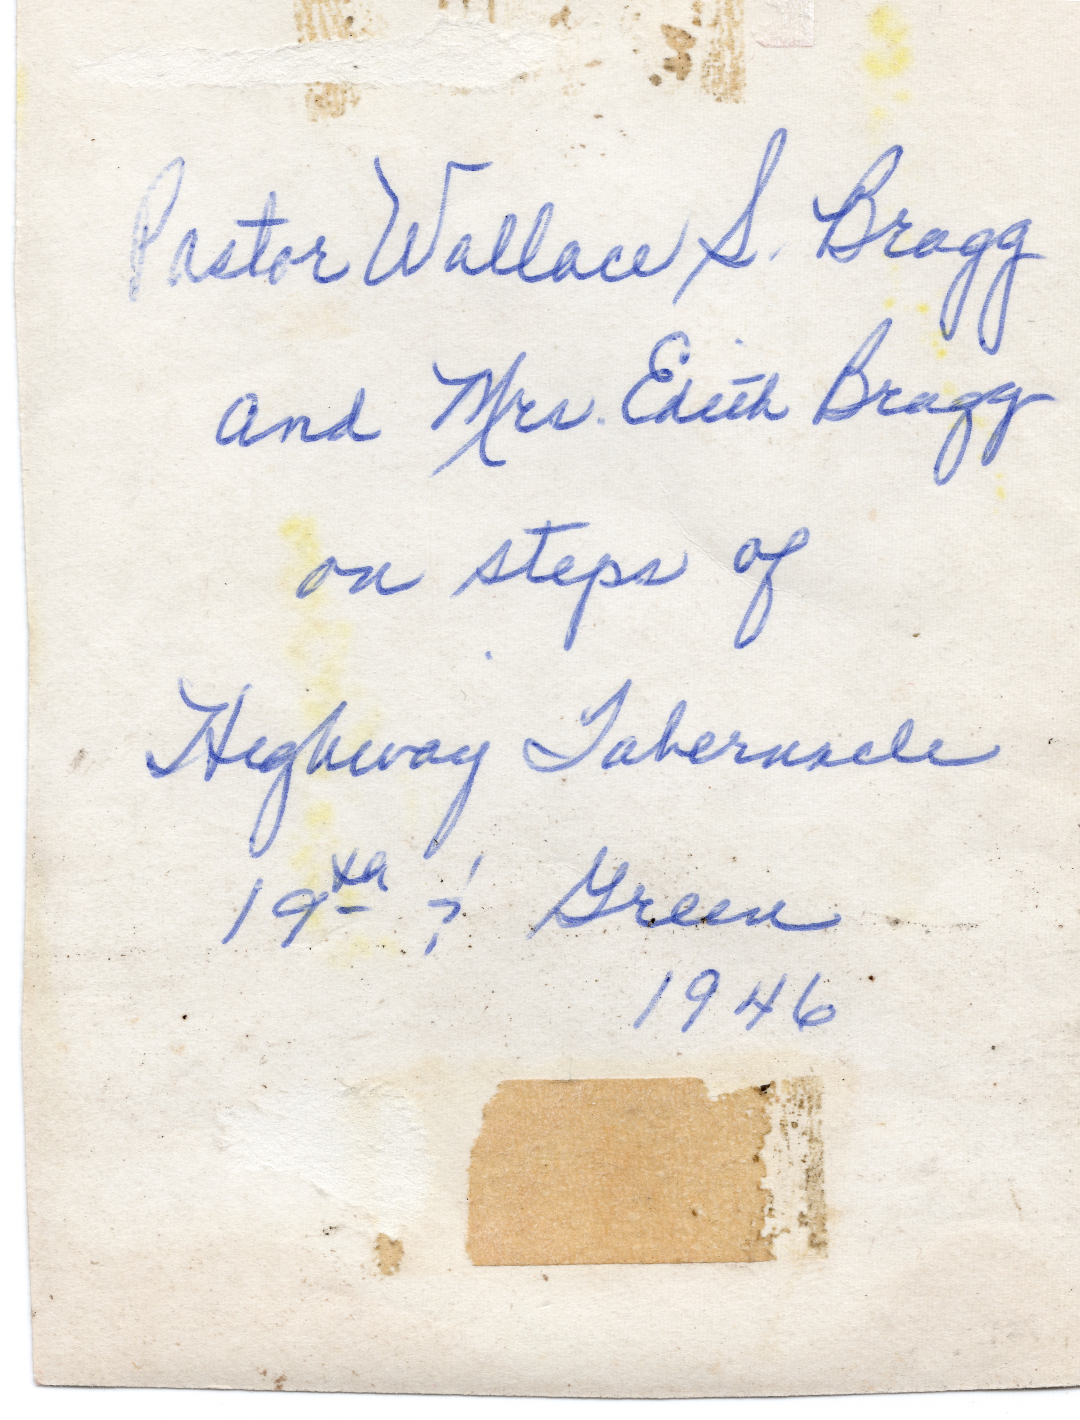 Pastor Wallace S. Bragg
and Mrs. Edith Bragg
on steps of
Highway Tabernacle
19th & Green
1946